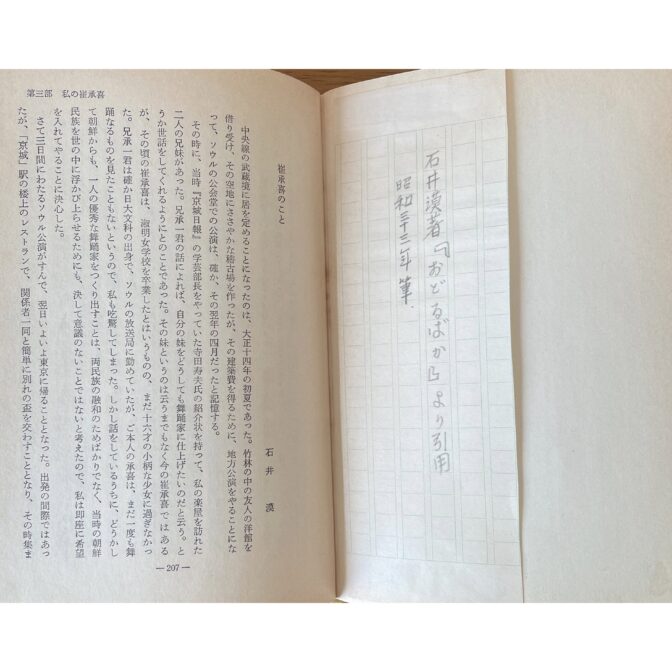 石井漠著『おどるばか』より引用
昭和三十二年筆.
第三部　私の崔承喜
崔承喜のこと
石井　漠
中央線の武蔵境に居を定めることになったのは、大正十四年の初夏であった。竹林の中の友人の洋館を
借り受け、その空地にささやかな稽古場を作ったが、その建築費を得るために、地方公演をやることにな
って、ソウルの公会堂での公演は、確か、その翌年の四月だったと記憶する。
その時に、当時『京城日報』の学芸部長をやっていた寺田寿夫氏の紹介状を持って、私の楽屋を訪れた
二人の兄妹があった。兄承一君の話によれば、自分の妹をどうしても舞踊家に仕上げたいのだと云う。ど
うか世話をしてくれるようにとのことであった。その妹というのは云うまでもなく今の崔承喜ではある
が、その頃の崔承喜は、淑明女学校を卒業したとはいうものの、まだ十六才の小柄な少女に過ぎなかっ
た。兄承一君は確か日大文科の出身で、ソウルの放送局に勤めていたが、ご本人の承喜は、まだ一度も舞
踊なるものを見たこともないというので、私も吃驚してしまった。しかし話をしているうちに、どうかし
て朝鮮からも、一人の優秀な舞踊家をつくり出すことは、両民族の融和のためばかりでなく、当時の朝鮮
民族を世の中に浮かび上らせるためにも、決して意義のないことではないと考えたので、私は即座に希望
を入れてやることに決心した。
さて三日間にわたるソウル公演がすんで、翌日いよいよ東京に帰ることとなった。出発の間際ではあっ
たが、「京城」駅の楼上のレストランで、関係者一同と簡単に別れの盃を交わすこととなり、その時集ま
— 207 —